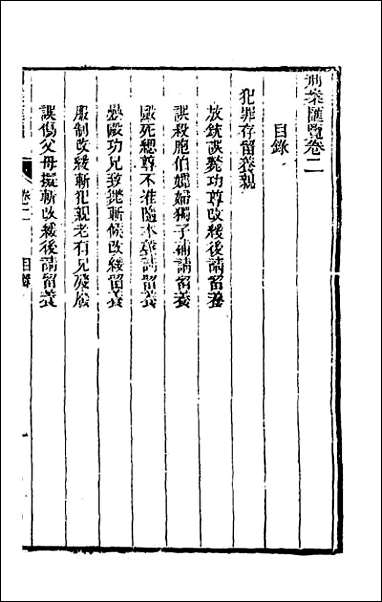 刑案匯覽卷二
目錄
犯罪存留養親
放銃誤斃功尊改緩後請留養
誤殺胞伯孀婦獨子補請留養
毆死緦尊不准隨本聲請留養
毆功兄致斃斬候改緩留養
服制改緩斬犯親老有兄殘廢
誤傷父母擬斬改緩後請留養
卷二 目錄
一